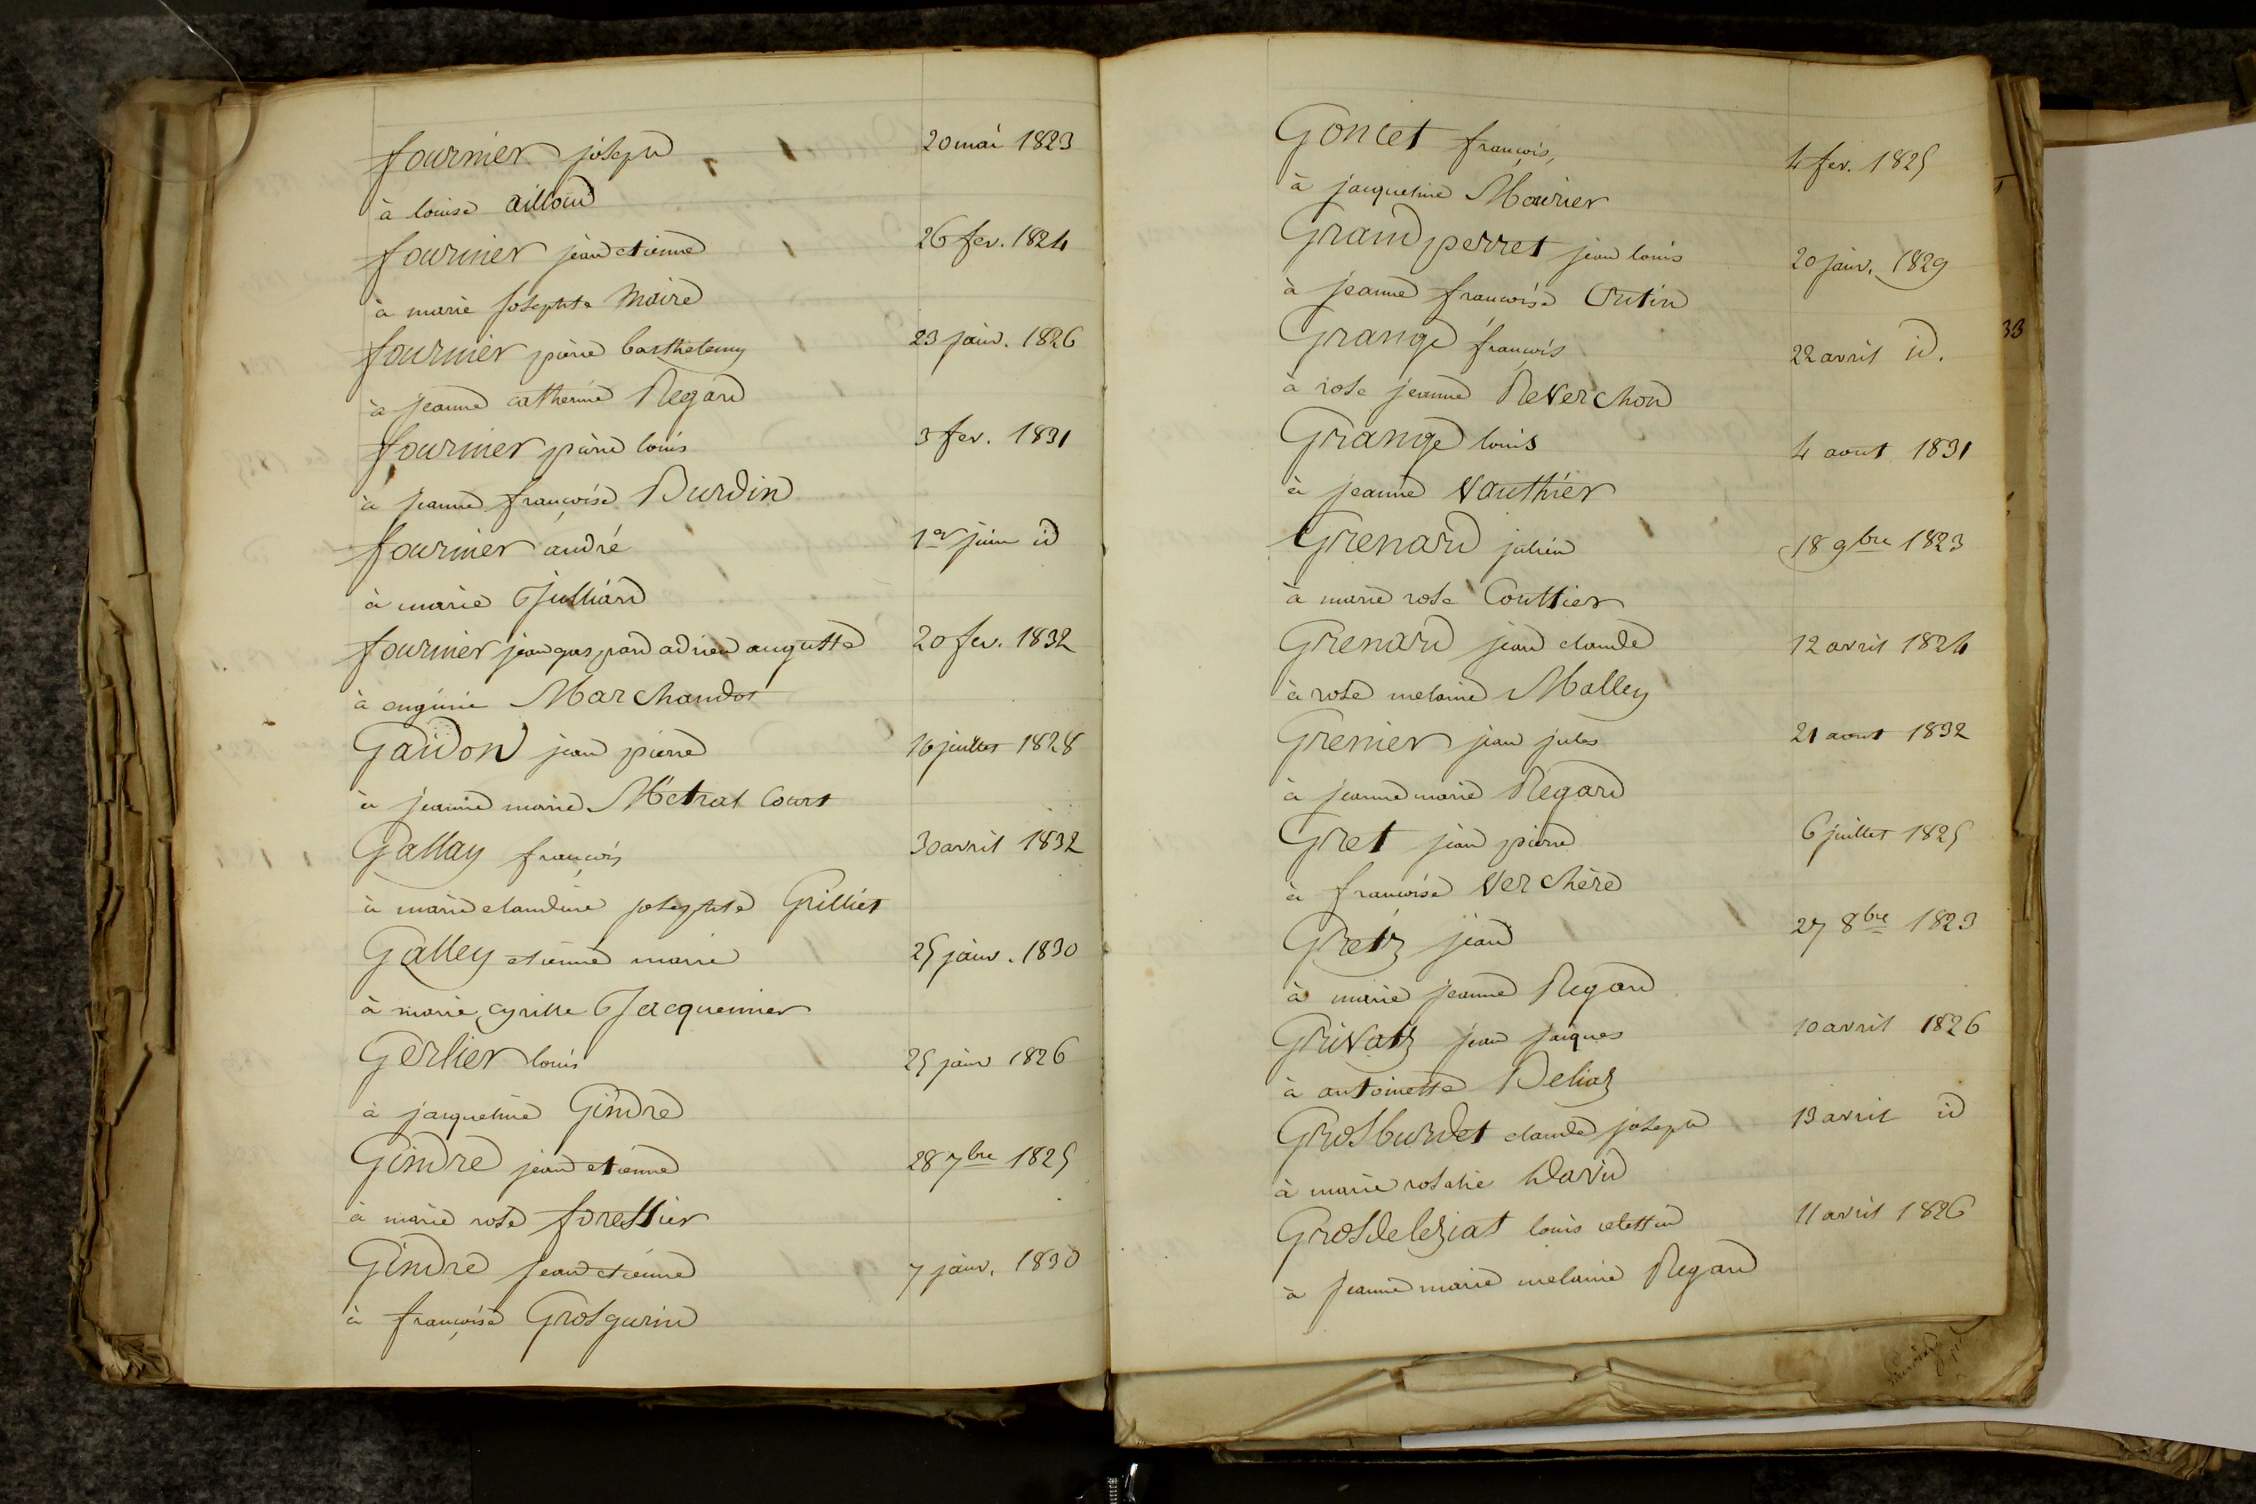 fournier joseph 20 mai 1823
à louise ailloud
fournier jean etienne 26 fev. 1824
à marie josephte Maire
fournier pierre barthelemy 23 janv. 1826
à jeanne catherine Regard
fournier pierre louis 3 fev. 1831
à jeanne françoise Burdin
fournier andré 1er juin id
à marie Julliard
fournier jean gaspard adrien auguste 20 fev. 1832
à eugénie Marchandot
Gaidon jean pierre 16 juillet 1828
à jeanne marie Métral Court
Gallay françois 30 avril 1832
à marie claudine josephte Grilliet
Galley etienne marie 25 janv. 1830
à marie cyrille Jacquemier
Gerlier louis 25 janv 1826
à jacqueline Gindre
Gindre jean etienne 28 7bre 1825
à marie rose forestier
Gindre jean etienne 7 janv. 1830
à françoise Grosgurin
Goncet françois, 4 fev. 1825
à jacqueline Mourier
Grand perret jean louis 20 janv. 1829
à jeanne françoise Outin
Grange françois 22 avril id.
à rose jeanne Reverchon
Grange louis 4 aout 1831
à jeanne Vauthier
Grenard julien 18 9bre 1823
à marie rose Couttier
Grenard jean claude 12 avril 1824
à rose melanie Malley
Grenier jean jules 21 aout 1832
à jeanne marie Regard
Gret jean pierre 6 juillet 1825
à françoise Verchère
Gretz jean 27 8bre 1823
à marie jeanne Regard
Grivatz jean jacques 10 avril 1826
à antoinette Deliaz
Grosburdet claude joseph 13 avril id
à marie rosalie David
Grosdeleziat louis celestin 11 avril 1826
à jeanne marie melanie Regard
33